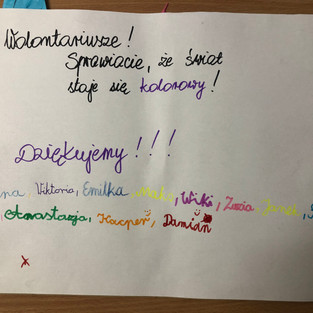 Wolontariusze!
Sprawiacie, że świat
staje się kolorowy!
Dziękujemy!!!
Wiktoria, Emilka, Maks, Wiki, Zuzia, Janek,
Anastazja, Kacper, Damian